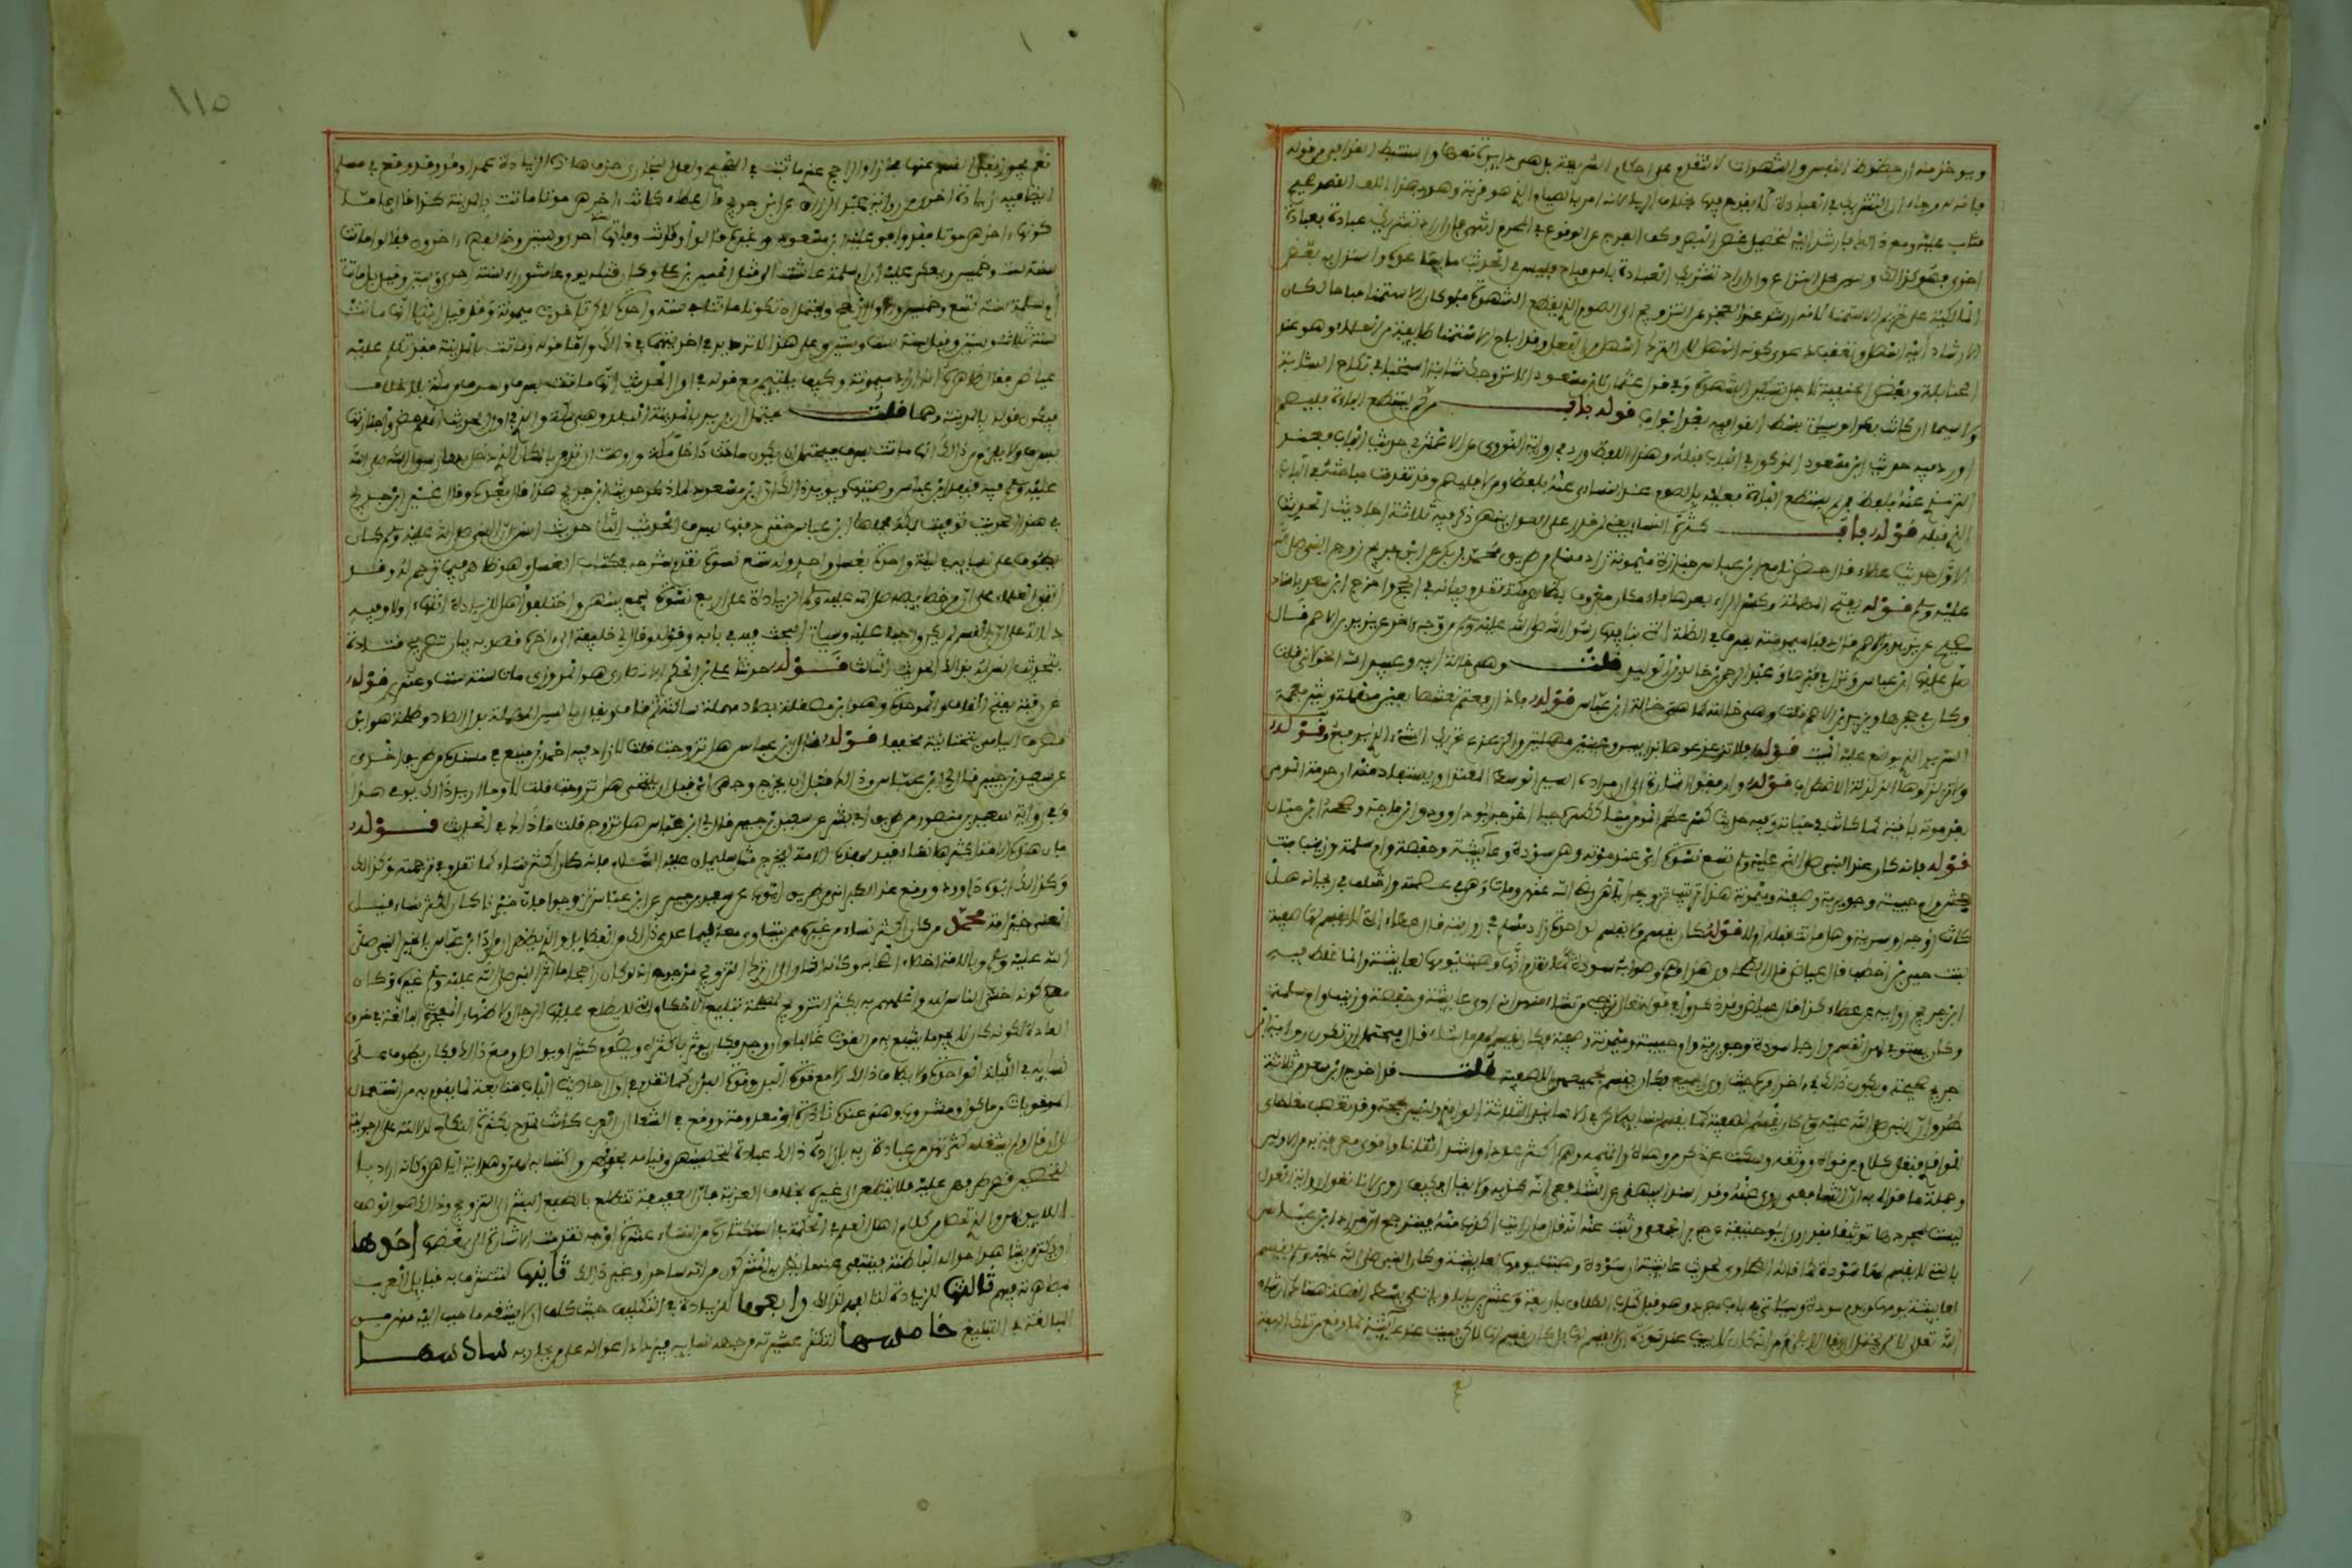 ويوخذ منه ان حظوظ النفس والشهوات لا تتقدم على احكام الشريعة بل هي دايرة معها واستنبط القرافي من قوله
فانه له وجاء ان التشريك في العبادة لا يقدح فيها بخلاف الرياء لانه امر بالصيام الذي هو قربة وهو بهذا القصد صحيح
مثاب عليه ومع ذلك فارشد اليه لتحصيل غض البصر وكف الفرج عن الوقوع في المحرم انتهى فان اراد تشريك عبادة بعبادة
اخرى فهو كذلك وليس محل النزاع وان اراد تشريك العبادة بامر مباح فليس في الحديث ما يساعده واستدل به بعض
المالكية على تحريم الاستمناء لانه ارشد عند العجز عن التزويج الى الصوم الذي يقطع الشهوة فلو كان الاستمناء مباحا لكان
الارشاد اليه اسهل وتعقب دعوى كونه اسهل لان الترك اسهل من الفعل وقد اباح الاستمناء طايفة من العلماء وهو عند
الحنابلة وبعض الحنفية لاجل تسكين الشهوة وفي قول عثمان لابن مسعود الا نزوجك شابة استحباب نكاح الشابة
ولا سيما ان كانت بكرا وسياتي بسط القول فيه بعد ابواب قوله باب من لم يستطع الباءة فليصم
اورد فيه حديث ابن مسعود المذكور في الباب قبله وهذا اللفظ ورد في رواية الثوري عن الاعمش في حديث الباب فعند
الترمذي عنه بلفظ فمن لم يستطع الباءة فعليه بالصوم وعند النساءي عنه بلفظ ومن لا فليصم وقد تقدمت مباحثه في الباب
الذي قبله قوله باب كثرة النساء يعني لمن قدر على العدل بينهن ذكر فيه ثلاثة احاديث الحديث
الاول حديث عطاء قال حضرنا مع ابن عباس جنازة ميمونة زاد مسلم من طريق محمد بن بكر عن ابن جريج زوج النبي صلى الله
عليه وسلم قوله بسرف بفتح المهملة وكسر الراء بعدها فاء مكان معروف بظاهر مكة تقدم بيانه في الحج واخرج ابن سعد باسناد
صحيح عن يزيد بن الاصم قال دفنا ميمونة بسرف في الظلة التي بنى بها فيها رسول الله صلى الله عليه وسلم ومن وجه اخر عن يزيد بن الاصم قال
صلى عليها ابن عباس ونزل في قبرها وعبد الرحمن بن خالد بن الوليد قلت وهي خالة ابيه وعبيد الله الخولاني قلت
وكان في حجرها ويزيد بن الاصم قلت وهي خالته كما هي خالة ابن عباس قوله فاذا رفعتم نعشها بعين مهملة وشين معجمة
السرير الذي يوضع عليه الميت قوله فلا تزعزعوها بزايين وعينين مهملتين والزعزعة تحريك الشيء الذي يرفع وقوله
ولا تزلزلوها الزلزلة الاضطراب قوله وارفقوا اشارة الى ان مراده السير الوسط المعتدل ويستفاد منه ان حرمة المومن
بعد موته باقية كما كانت في حياته وفيه حديث كسر عظم المومن ميتا ككسره حيا اخرجه ابو داوود وابن ماجة وصححه ابن حبان
قوله فانه كان عند النبي صلى الله عليه وسلم تسع نسوة اي عند موته وهن سودة وعايشة وحفصة وام سلمة وزينب بنت
جحش وام حبيبة وجويرية وصفية وميمونة هذا ترتيب تزويجه اياهن رضي الله عنهن ومات وهن في عصمته واختلف في ريحانة هل
كانت زوجة او سرية وهل ماتت قبله او لا قوله كان يقسم ولا يقسم لواحدة زاد مسلم في روايته قال عطاء التي لا يقسم لها صفية
بنت حيي بن اخطب قال عياض قال الطحاوي هذا وهم وصوابه سودة كما تقدم انها وهبت يومها لعايشة وانما غلط فيه
ابن جريج راويه عن عطاء كذا قال عياض وقد ذكروا في قوله تعالى ترجي من تشاء منهن انه اوى عايشة وحفصة وزينب وام سلمة
وكان يستوفي لهن القسم وارجا سودة وجويرية وام حبيبة وميمونة وصفية وكان يقسم لهن ما شاء قال فيحتمل ان تكون رواية ابن
جريج صحيحة ويكون ذلك في اخر امره حيث اوى الجميع فكان يقسم لجميعهن الا لصفية قلت قد اخرج ابن سعد من ثلاثة
طرق ان النبي صلى الله عليه وسلم كان يقسم لصفية كما يقسم لنسايه لكن في الاسانيد الثلاثة الواقدي وليس بحجة وقد تعصب مغلطاي
للواقدي فنقل كلام من قواه ووثقه وسكت عن ذكر من وهاه واتهمه وهم اكثر عددا واشد اتقانا واقوى معرفة به من الاولين
ومن جملة ما قواه به ان الشافعي روى عنه وقد اسند البيهقي عن الشافعي انه كذبه ولا يقال فكيف روى عنه لانا نقول رواية العدل
ليست بمجردها توثيقا فقد روى ابو حنيفة عن جابر الجعفي وثبت عنه انه قال ما رايت اكذب منه فيترجح ان مراد ابن عباس
بالتي لا يقسم لها سودة كما قاله الطحاوي لحديث عايشة ان سودة وهبت يومها لعايشة وكان النبي صلى الله عليه وسلم يقسم
لعايشة يومها ويوم سودة وسياتي في باب مفرد وهو قبل كتاب الطلاق باربعة وعشرين بابا وياتي بسط القصة هناك ان شاء
الله تعالى لكن يحتمل ان يقال لا يلزم من انه كان لا يبيت عند سودة ان لا يقسم لها بل كان يقسم لها لكن يبيت عند عايشة لما وقع من تلك الهبة
نعم يجوز نفي القسم عنها مجازا والراجح عندي ما ثبت في الصحيح ولعل البخاري حذف هذه الزيادة عمدا وقد وقع في مسلم
ايضا فيه زيادة اخرى من رواية عبد الرزاق عن ابن جريج قال عطاء كانت اخرهن موتا ماتت بالمدينة كذا قال فاما
كونها اخرهن موتا فقد وافق عليه ابن سعد وغيره قالوا وكانت وفاتها سنة احدى وستين وخالفهم اخرون فقالوا ماتت
سنة ست وخمسين ويعكر عليه ان ام سلمة عاشت الى قتل الحسين بن علي وكان قتله يوم عاشوراء سنة احدى وستين وقيل بل ماتت
ام سلمة سنة تسع وخمسين والاول ارجح ويحتمل ان تكونا ماتتا في سنة واحدة لكن تاخرت ميمونة وقد قيل ايضا انها ماتت
سنة ثلاث وستين وقيل سنة ست وستين وعلى هذا لا ترديد في اخريتها في ذلك واما قوله وماتت بالمدينة فقد تكلم عليه
عياض فقال ظاهره انه اراد ميمونة وكيف يلتيم مع قوله في اول الحديث انها ماتت بسرف وسرف من مكة بلا خلاف
فيكون قوله بالمدينة وهما قلت يحتمل ان يريد بالمدينة البلد وهي مكة والذي في اول الحديث انهم حضروا جنازتها
بسرف ولا يلزم من ذلك انها ماتت بسرف فيحتمل ان يكون ماتت داخل مكة واوصت ان تدفن بالمكان الذي دخل بها رسول الله صلى الله
عليه وسلم فيه فنفذ ابن عباس وصيتها ويويد ذلك ان ابن سعد لما ذكر حديث ابن جريج هذا قال بعده وقال غير ابن جريج
في هذا الحديث توفيت بمكة فحملها ابن عباس حتى دفنها بسرف الحديث الثاني حديث انس ان النبي صلى الله عليه وسلم كان
يطوف على نسايه في ليلة واحدة بغسل واحد وله تسع نسوة تقدم شرحه في كتاب الغسل وهو ظاهر فيما ترجم له وقد
اتفق العلماء على ان من خصايصه صلى الله عليه وسلم الزيادة على اربع نسوة يجمع بينهن واختلفوا هل للزيادة انتهاء او لا وفيه
دلالة على ان القسم لم يكن واجبا عليه وسياتي البحث فيه في بابه وقوله وقال لي خليفة الى اخره قصد به بيان تصريح قتادة
بتحديث انس له بذلك الحديث الثالث قوله حدثنا علي بن الحكم الانصاري هو المروزي مات سنة ست وعشرين قوله عن
رقبة بفتح القاف والموحدة وهو ابن مصقلة بصاد مهملة ساكنة ثم قاف ويقال بالسين المهملة بدل الصاد وطلحة هو ابن
مصرف اليامي بتحتانية مخففا قوله قال لي ابن عباس هل تزوجت قلت لا زاد فيه احمد بن منيع في مسنده من طريق اخرى
عن سعيد بن جبير قال لي ابن عباس وذلك قبل ان يخرج وجهي اي قبل ان يلتحي هل تزوجت قلت لا وما اريد ذلك يومي هذا
وفي رواية سعيد بن منصور من طريق ابي بشر عن سعيد بن جبير قال لي ابن عباس هل تزوجت قلت ما ذاك في الحديث قوله
فان خير هذه الامة اكثرها نساء قيد بهذه الامة ليخرج مثل سليمان عليه السلام فانه كان اكثر نساء كما تقدم في ترجمته وكذلك
وكذلك ابوه داوود ووقع عند الطبراني من طريق ايوب عن سعيد بن جبير عن ابن عباس تزوجوا فان خيرنا كان اكثرنا نساء قيل
المعنى خير امة محمد من كان اكثر نساء من غيره ممن يتساوى معه فيما عدى ذلك من الفضايل والذي يظهر ان مراد ابن عباس بالخير النبي صلى
الله عليه وسلم وبالامة اخصاء اصحابه وكانه اشار الى ان ترك التزويج مرجوح اذ لو كان راجحا ما اثر النبي صلى الله عليه وسلم غيره وكان
مع كونه اخشى الناس لله واعلمهم به يكثر التزويج لمصلحة تبليغ الاحكام التي لا يطلع عليها الرجال ولاظهار المعجزة البالغة في خرق
العادة لكونه كان لا يجد ما يشبع به من القوت غالبا وان وجد وكان يوثر باكثره ويصوم كثيرا ويواصل ومع ذلك فكان يطوف على
نسايه في الليلة الواحدة ولا يطاق ذلك الا مع قوة البدن وقوة البدن كما تقدم في اول احاديث الباب تابعة لما يقوم به من استعمال
المقويات من ماكول ومشروب وهي عنده نادرة او معدومة ووقع في الشفا ان العرب كانت تمدح بكثرة النكاح لدلالته على الرجولية
الى ان قال ولم تشغله كثرتهن عن عبادة ربه بل زاده ذلك عبادة لتحصينهن وقيامه بحقوقهن واكتسابه لهن وهدايته اياهن وكانه اراد با
لتحصين قصر طرفهن عليه فلا يتطلعن الى غيره بخلاف العزبة فان العفيفة تتطلع بالطبع البشري الى التزويج وذلك هو الوصف
اللايق بهن والذي تحصل من كلام اهل العلم في الحكمة في استكثاره من النساء عشرة اوجه تقدمت الاشارة الى بعضها احدها
ان يكثر من يشاهد احواله الباطنة فينتفي عنه ما يظن به المشركون من انه ساحر او غير ذلك ثانيها لتتشرف به قبايل العرب
بمصاهرته فيهم ثالثها للزيادة لتالفهم لذلك رابعها للزيادة في التكليف حيث كلف ان لا يشغله ما حبب اليه منهن عن
المبالغة في التبليغ خامسها لتكثر عشيرته من جهة نسايه فيزداد اعوانه على من يحاربه سادسها